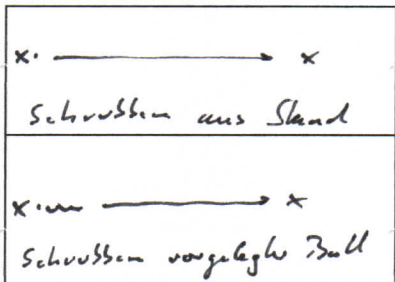 x. x
Schrubben aus Stand
x. x
Schrubben vorgelegter Ball